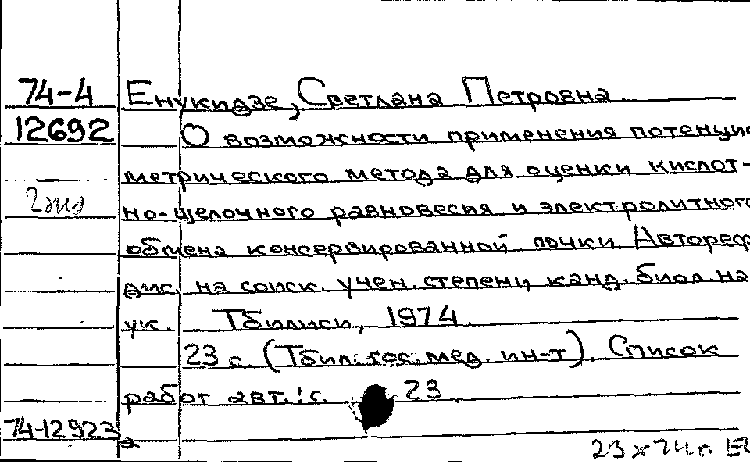 74-4 Енукидзе, Светлана Петровна
12692 О возможности применения потенцио
метрического метода для оценки кислот-
но-щелочного равновесия и электролитного
обмена консервированной почки. Автореф
дис. на соиск. учен. степени канд. биол. на
ук. Тбилиси, 1974
23 с. (Тбил. гос. мед. ин-т). Список
работ авт.: с. 23
74-12923
23 X 74 г.